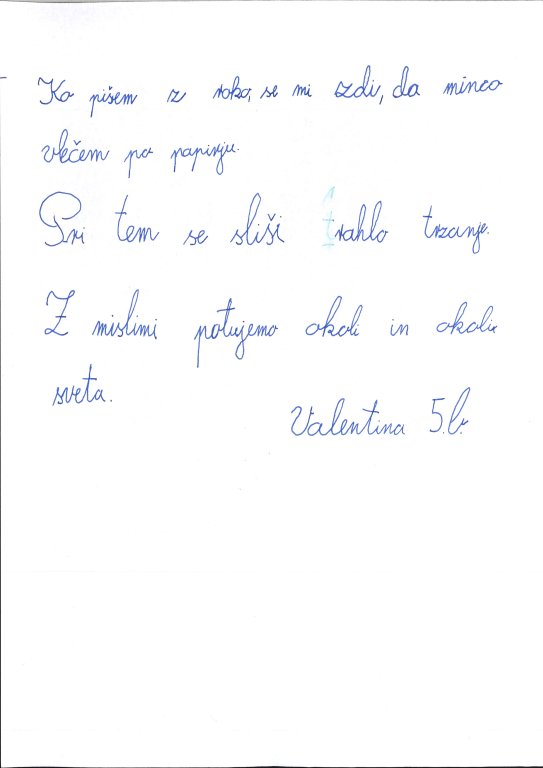 Ko pišem z roko, se mi zdi, da minco
vlečem po papirju.
Pri tem se sliši trahlo trzanje.
Z mislimi potujemo okoli in okoli
sveta.
Valentina 5.b